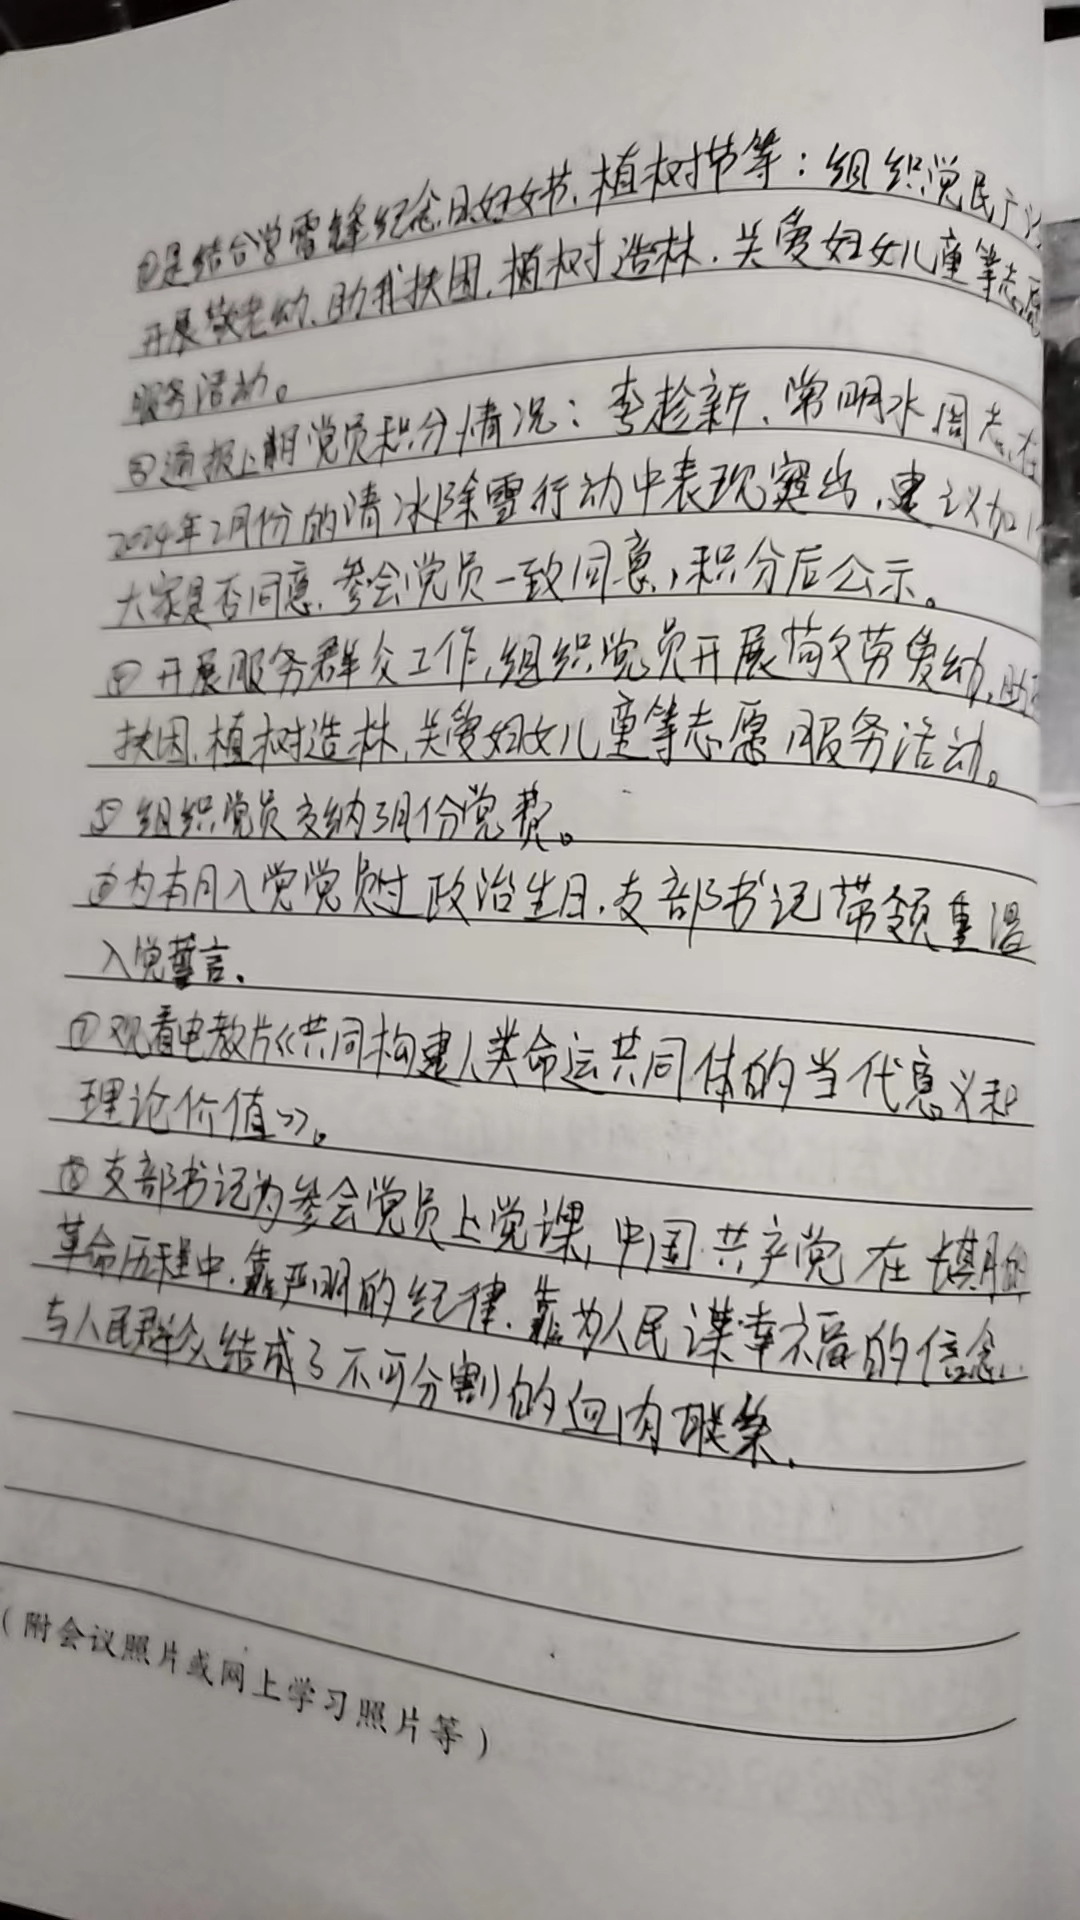 ②是结合学雷锋纪念日妇女节、植树节等：组织党民广
开展敬老幼、助我扶困、植树造林、关爱妇女儿童等志愿
服务活动。
③通报上期党员积分情况：李趁新、常明水 周志 在
2024年2月份的清冰除雪行动中表现突出，建议加
大家是否同意，参会党员一致同意，积分后公示。
④开展服务群众工作，组织党员开展 爱幼、助
扶困、植树造林、关爱妇女儿童等志愿服务活动。
⑤组织党员交纳3月份党费。
⑥为本月入党党员过政治生日，支部书记带领重温
入党誓言。
⑦观看电教片《共同构建人类命运共同体的当代意义和
理论价值》。
⑧支部书记为参会党员上党课，中国共产党在长期的
革命历程中，靠严明的纪律，靠为人民谋幸福的信念，
与人民群众结成了不可分割的血肉联系，
（附会议照片或网上学习照片等）